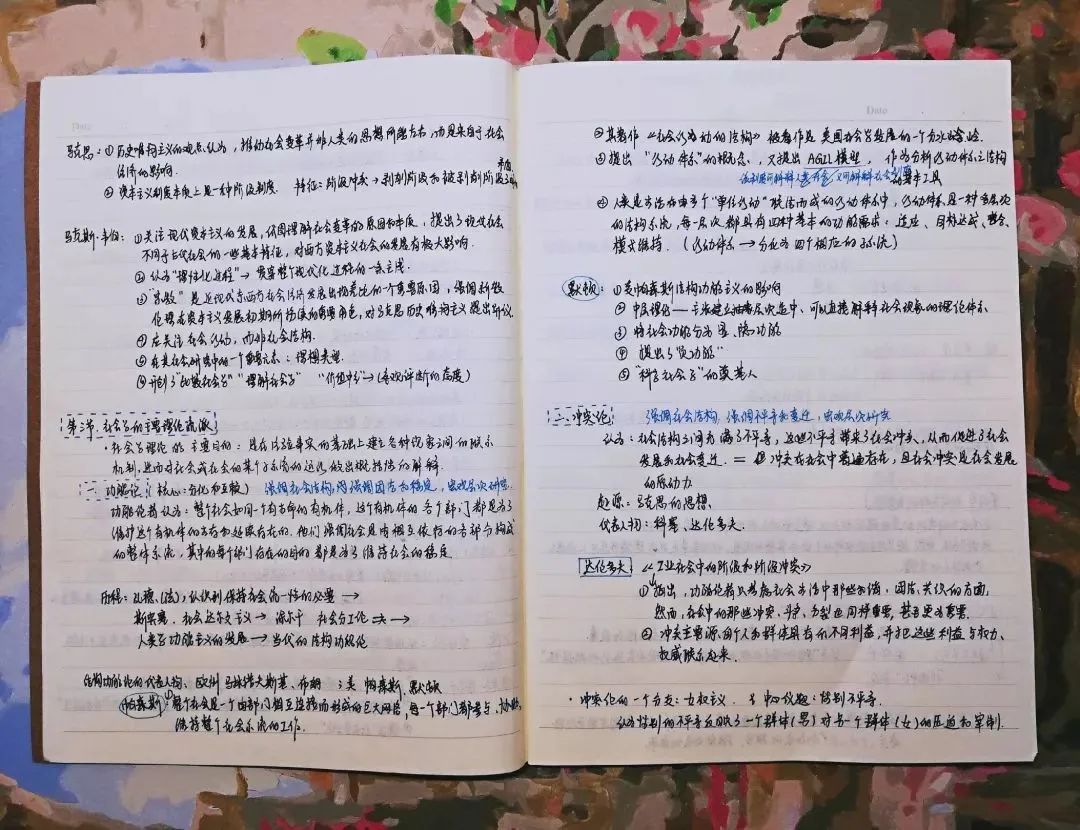 Date
马克思：①历史唯物主义的观点认为，推动社会变革并非人类的思想所能左右，而是来自于社会
经济的影响。
②资本主义制度本质上是一种阶级制度. 特征：阶级冲突→剥削阶级和被剥削阶级
矛盾
马克斯·韦伯：①关注现代资本主义的发展，试图理解社会变革的原因和本质，提出了现代社会
不同于古代社会的一些基本特征，对西方资本主义社会的发展有极大影响.
②认为“理性化过程”→贯穿整个现代化过程的一条主线.
③“宗教”是近现代东西方社会经济发展出现差比的一个重要原因，强调新教
伦理在资本主义发展初期所扮演的重要角色，对马克思历史唯物主义提出异议
④应关注社会行动，而非社会结构.
⑤在其社会研究中的一个重要元素：理想类型.
⑥开创了“比较社会学”“理解社会学” “价值中立”→(客观评断的态度)
第三节、社会学的主要理论流派
·社会学理论的主要目的：是在经验事实的基础上建立各种现象之间的联系
机制，进而对社会或社会的某个子系统的运作做出概括性的解释.
一、功能论(核心：分化和互赖) 强调社会结构，强调团结和稳定，宏观层次研究
功能论者认为：整个社会如同一个有生命的有机体，这个有机体的各个部门都是为了
维护这个有机体的生存和延续存在的. 他们强调社会是由相互依存的各部分构成
的整体系统，其中的每个部门存在的目的都是为了维持社会的稳定.
历程：孔德(法)，认识到保持社会统一性的必要→
斯宾塞. 社会达尔文主义→涂尔干 社会分工论→→
人类学功能主义的发展→当代的结构功能论
结构功能论的代表人物、欧洲 马林诺夫斯基、布朗；美 帕森斯，默顿
帕森斯：整个社会是一个由部门相互连接而形成的巨大网络，每一个部门都参与、协助
维持整个社会系统的工作.
Date
②其著作《社会行动的结构》被看作是美国社会学发展的一个分水岭.
③提出“行动体系”的概念，又提出AGIL模型，作为分析行动体系、结构
的基本工具
④人类生活在由多个“单位行动”联结而成的行动体系中，行动体系是一种多层次
的结构系统，每一层次都具有四种基本的功能需求：适应、目标达成、整合、
模式维持. (行动体系→分化为四个相应的子系统)
默顿：①受帕森斯结构功能主义的影响
②中层理论——主张建立抽象层次适中、可以直接解释社会现象的理论体系
③将社会功能分为显、隐功能
④提出了“负功能”
⑤“科学社会学”的奠基人
二、冲突论 强调社会结构，强调不平等和变迁，宏观层次研究
认为：社会结构之间充满了不平等，这些不平等带来了社会冲突，从而促进了社会
发展和社会变迁. = 冲突在社会中普遍存在，且社会冲突是社会发展
的原动力.
起源：马克思的思想.
代表人物：科塞、达伦多夫.
达伦多夫 《工业社会中的阶级和阶级冲突》
①指出，功能论者只考虑社会生活中那些和谐、团结、共识的方面，
然而，社会中的那些冲突、斗争、分裂也同样重要，甚至更为重要.
②冲突主要源自个人和群体具有的不同利益，并把这些利益与权力、
权威联系起来.
·冲突论的一个分支：女权主义. 中心议题：性别不平等.
认为性别的不平等反映了一个群体(男)对另一个群体(女)的压迫和宰制.